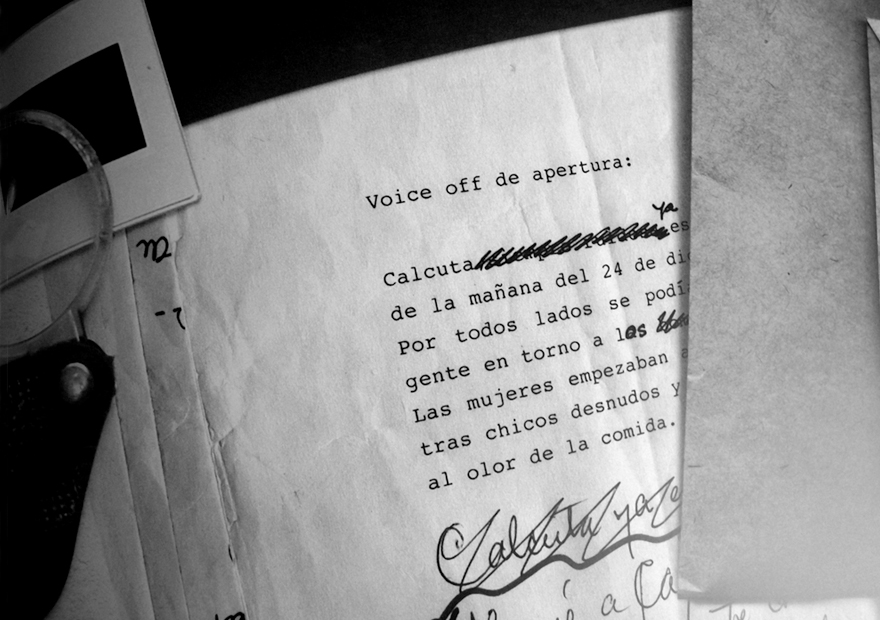 Voice off de apertura:
ya
Calcuta es
de la mañana del 24 de dic
Por todos lados se podía
gente en torno a las
Las mujeres empezaban a
tras chicos desnudos y
al olor de la comida.
Calcuta ya
a Ca